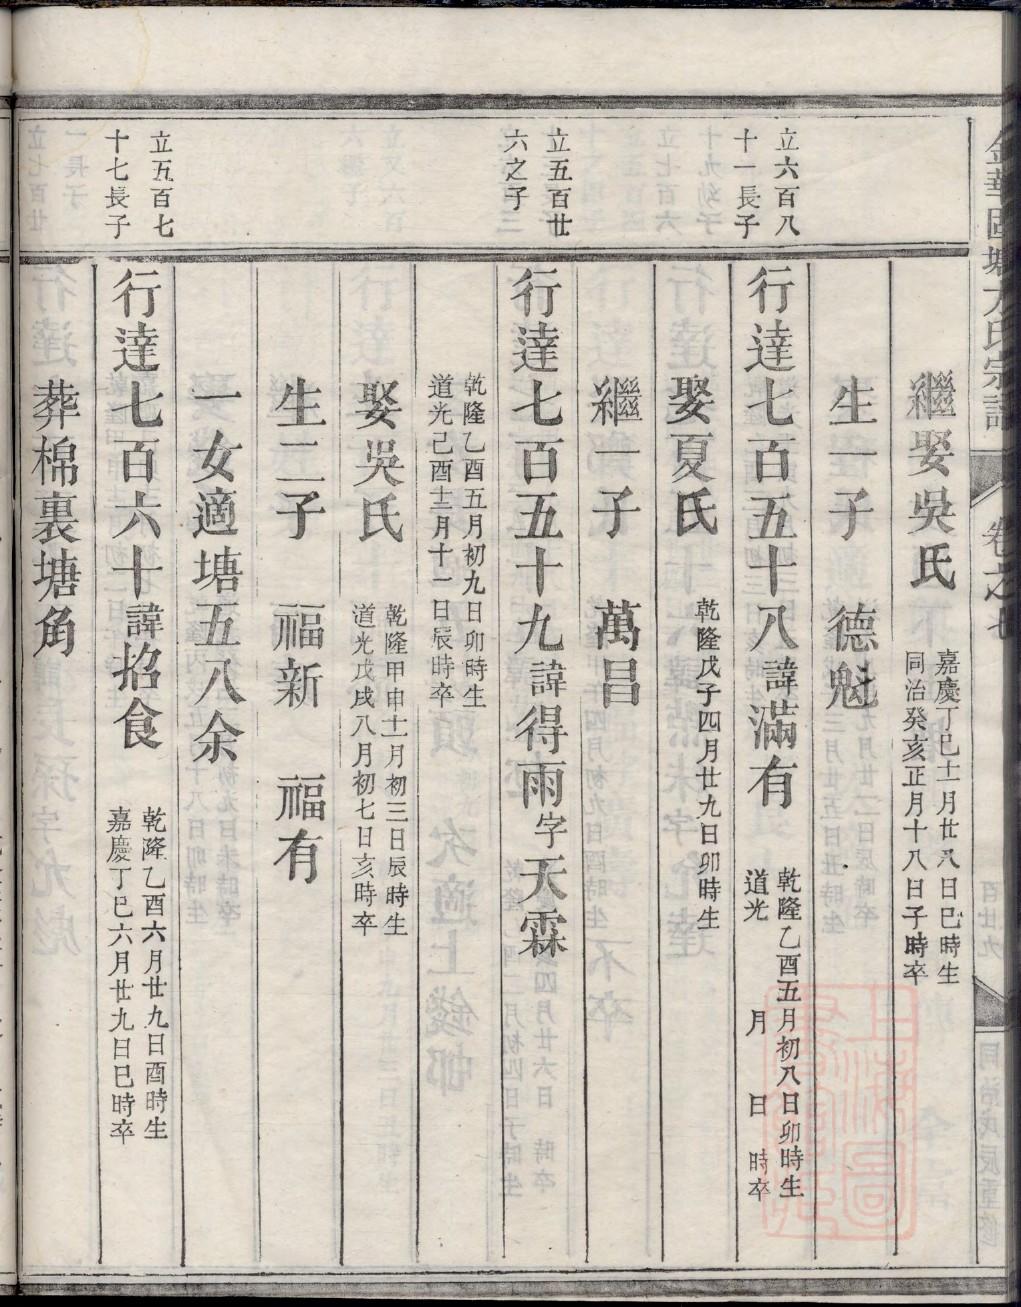 金華 方氏宗譜 卷之七 百廿九 同治戊辰重修
繼娶吳氏
嘉慶丁巳十一月廿八日巳時生
同治癸亥正月十八日子時卒
生一子 德魁
立六百八
十一長子
行達七百五十八諱滿有
乾隆乙酉五月初八日卯時生
道光 月 日 時卒
娶夏氏
乾隆戊子四月廿九日卯時生
繼一子 萬昌
立五百廿
六之子
行達七百五十九諱得雨字天霖
乾隆乙酉五月初九日卯時生
道光己酉十二月十一日辰時卒
娶吳氏
乾隆甲申十一月初三日辰時生
道光戊戌八月初七日亥時卒
生二子 福新 福有
一女適塘五八余
立五百七
十七長子
行達七百六十諱招食
乾隆乙酉六月廿九日酉時生
嘉慶丁巳六月廿九日巳時卒
葬棉裏塘角